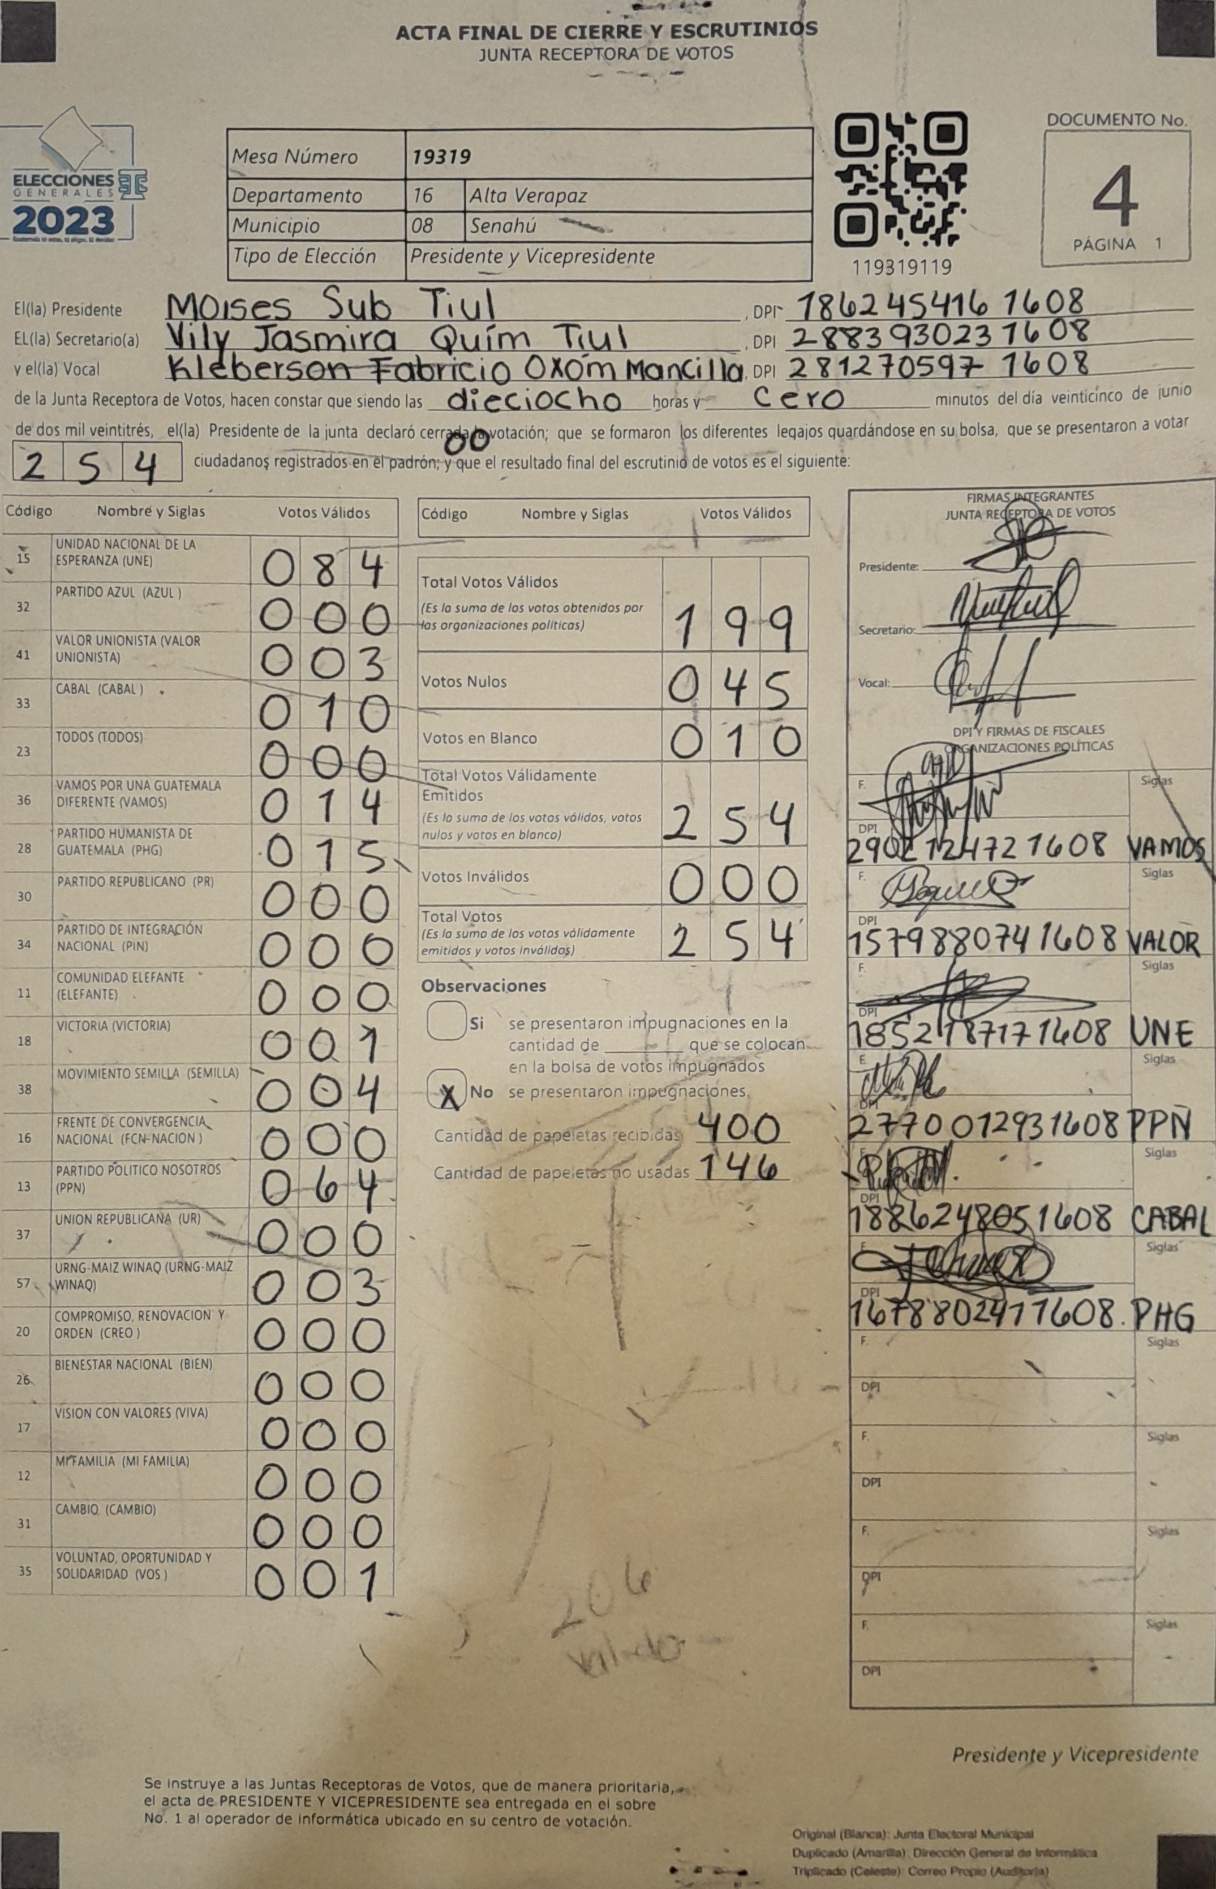 ACTA FINAL DE CIERRE Y ESCRUTINIOS
JUNTA RECEPTORA DE VOTOS
ELECCIONES
GENERALES
2023
Mesa Número 19319
Departamento 16 Alta Verapaz
Municipio 08 Senahú
Tipo de Elección Presidente y Vicepresidente
119319119
DOCUMENTO No.
4
PÁGINA 1
El(la) Presidente Moises Sub Tiul , DPI 186245416 1608
EL(la) Secretario(a) Vily Jasmira Quim Tiul , DPI 288393023 1608
y el(la) Vocal Kleberson Fabricio Oxom Mancilla, DPI 281270597 1608
de la Junta Receptora de Votos, hacen constar que siendo las dieciocho horas y cero minutos del día veinticinco de junio
de dos mil veintitrés, el(la) Presidente de la junta declaró cerrada la votación; que se formaron los diferentes legajos guardándose en su bolsa, que se presentaron a votar
00
254 ciudadanos registrados en el padrón; y que el resultado final del escrutinio de votos es el siguiente:
Código Nombre y Siglas Votos Válidos
15 UNIDAD NACIONAL DE LA ESPERANZA (UNE) 084
32 PARTIDO AZUL (AZUL ) 000
41 VALOR UNIONISTA (VALOR UNIONISTA) 003
33 CABAL (CABAL ) 010
23 TODOS (TODOS) 000
36 VAMOS POR UNA GUATEMALA DIFERENTE (VAMOS) 014
28 PARTIDO HUMANISTA DE GUATEMALA (PHG) 015
30 PARTIDO REPUBLICANO (PR) 000
34 PARTIDO DE INTEGRACIÓN NACIONAL (PIN) 000
11 COMUNIDAD ELEFANTE (ELEFANTE) 000
18 VICTORIA (VICTORIA) 001
38 MOVIMIENTO SEMILLA (SEMILLA) 004
16 FRENTE DE CONVERGENCIA NACIONAL (FCN-NACION ) 000
13 PARTIDO POLITICO NOSOTROS (PPN) 064
37 UNION REPUBLICANA (UR) 000
57 URNG-MAIZ WINAQ (URNG-MAIZ WINAQ) 003
20 COMPROMISO, RENOVACION Y ORDEN (CREO ) 000
26 BIENESTAR NACIONAL (BIEN) 000
17 VISION CON VALORES (VIVA) 000
12 MI FAMILIA (MI FAMILIA) 000
31 CAMBIO (CAMBIO) 000
35 VOLUNTAD, OPORTUNIDAD Y SOLIDARIDAD (VOS ) 001
Código Nombre y Siglas Votos Válidos
Total Votos Válidos
(Es la suma de los votos obtenidos por
las organizaciones políticas) 199
Votos Nulos 045
Votos en Blanco 010
Total Votos Válidamente
Emitidos
(Es la suma de los votos válidos, votos
nulos y votos en blanco) 254
Votos Inválidos 000
Total Votos
(Es la suma de los votos válidamente
emitidos y votos inválidos) 254
Observaciones
Si se presentaron impugnaciones en la
cantidad de ______ que se colocan
en la bolsa de votos impugnados
X No se presentaron impugnaciones.
Cantidad de papeletas recibidas 400
Cantidad de papeletas no usadas 146
206
valido
FIRMAS INTEGRANTES
JUNTA RECEPTORA DE VOTOS
Presidente:
Secretario:
Vocal:
DPI Y FIRMAS DE FISCALES
ORGANIZACIONES POLÍTICAS
F. Siglas
DPI
VAMOS
F. Siglas
DPI
1579880741608 VALOR
F. Siglas
DPI
1852187171608 UNE
F. Siglas
DPI
2770012931608 PPN
F. Siglas
DPI
1886248051608 CABAL
F. Siglas
DPI
1678802411608. PHG
F. Siglas
DPI
F. Siglas
DPI
F. Siglas
DPI
F. Siglas
DPI
Presidente y Vicepresidente
Se instruye a las Juntas Receptoras de Votos, que de manera prioritaria,
el acta de PRESIDENTE Y VICEPRESIDENTE sea entregada en el sobre
No. 1 al operador de informática ubicado en su centro de votación.
Original (Blanca): Junta Electoral Municipal
Duplicado (Amarilla): Dirección General de Informática
Triplicado (Celeste): Correo Propio (Auditoría)